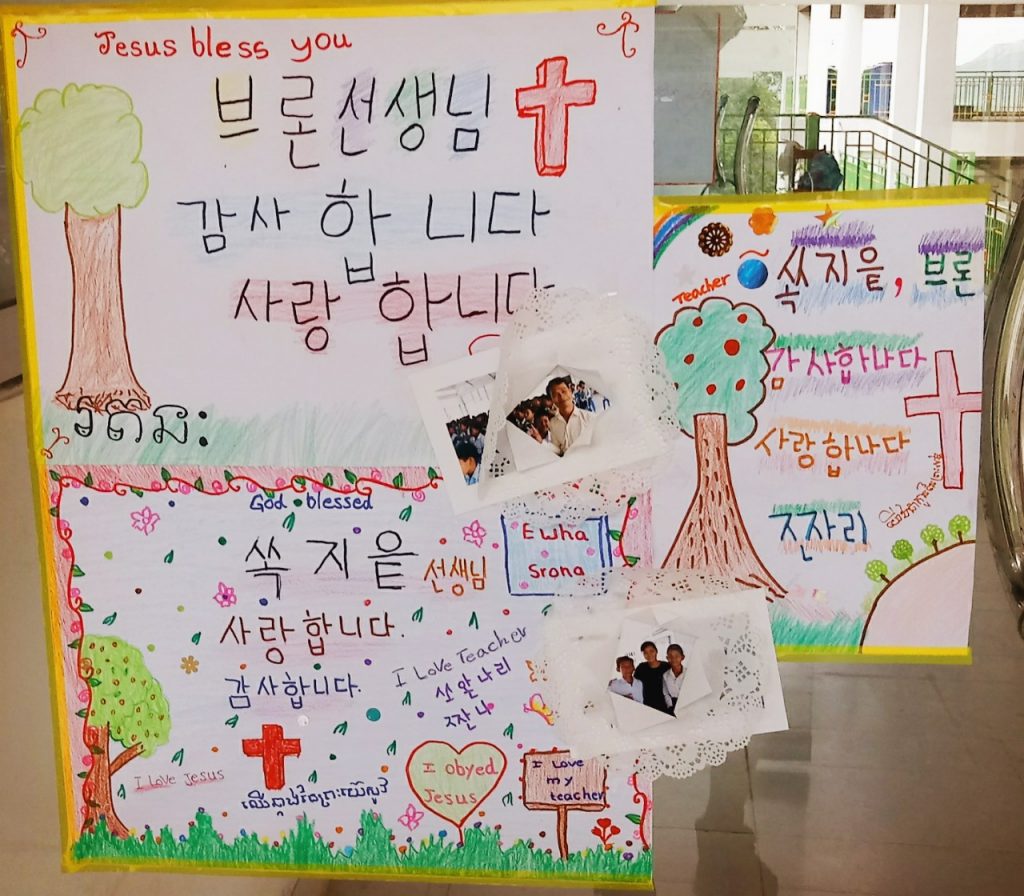 Jesus bless you
브론선생님
감사합니다
사랑합니다
Teacher
쏙지읕, 브론
감사합나다
사랑합나다
God blessed
쏙지읕 선생님
Ewha
Srona
사랑합니다.
감사합니다.
I Love Teacher
I Love Jesus
I obyed
Jesus
I Love
my
teacher